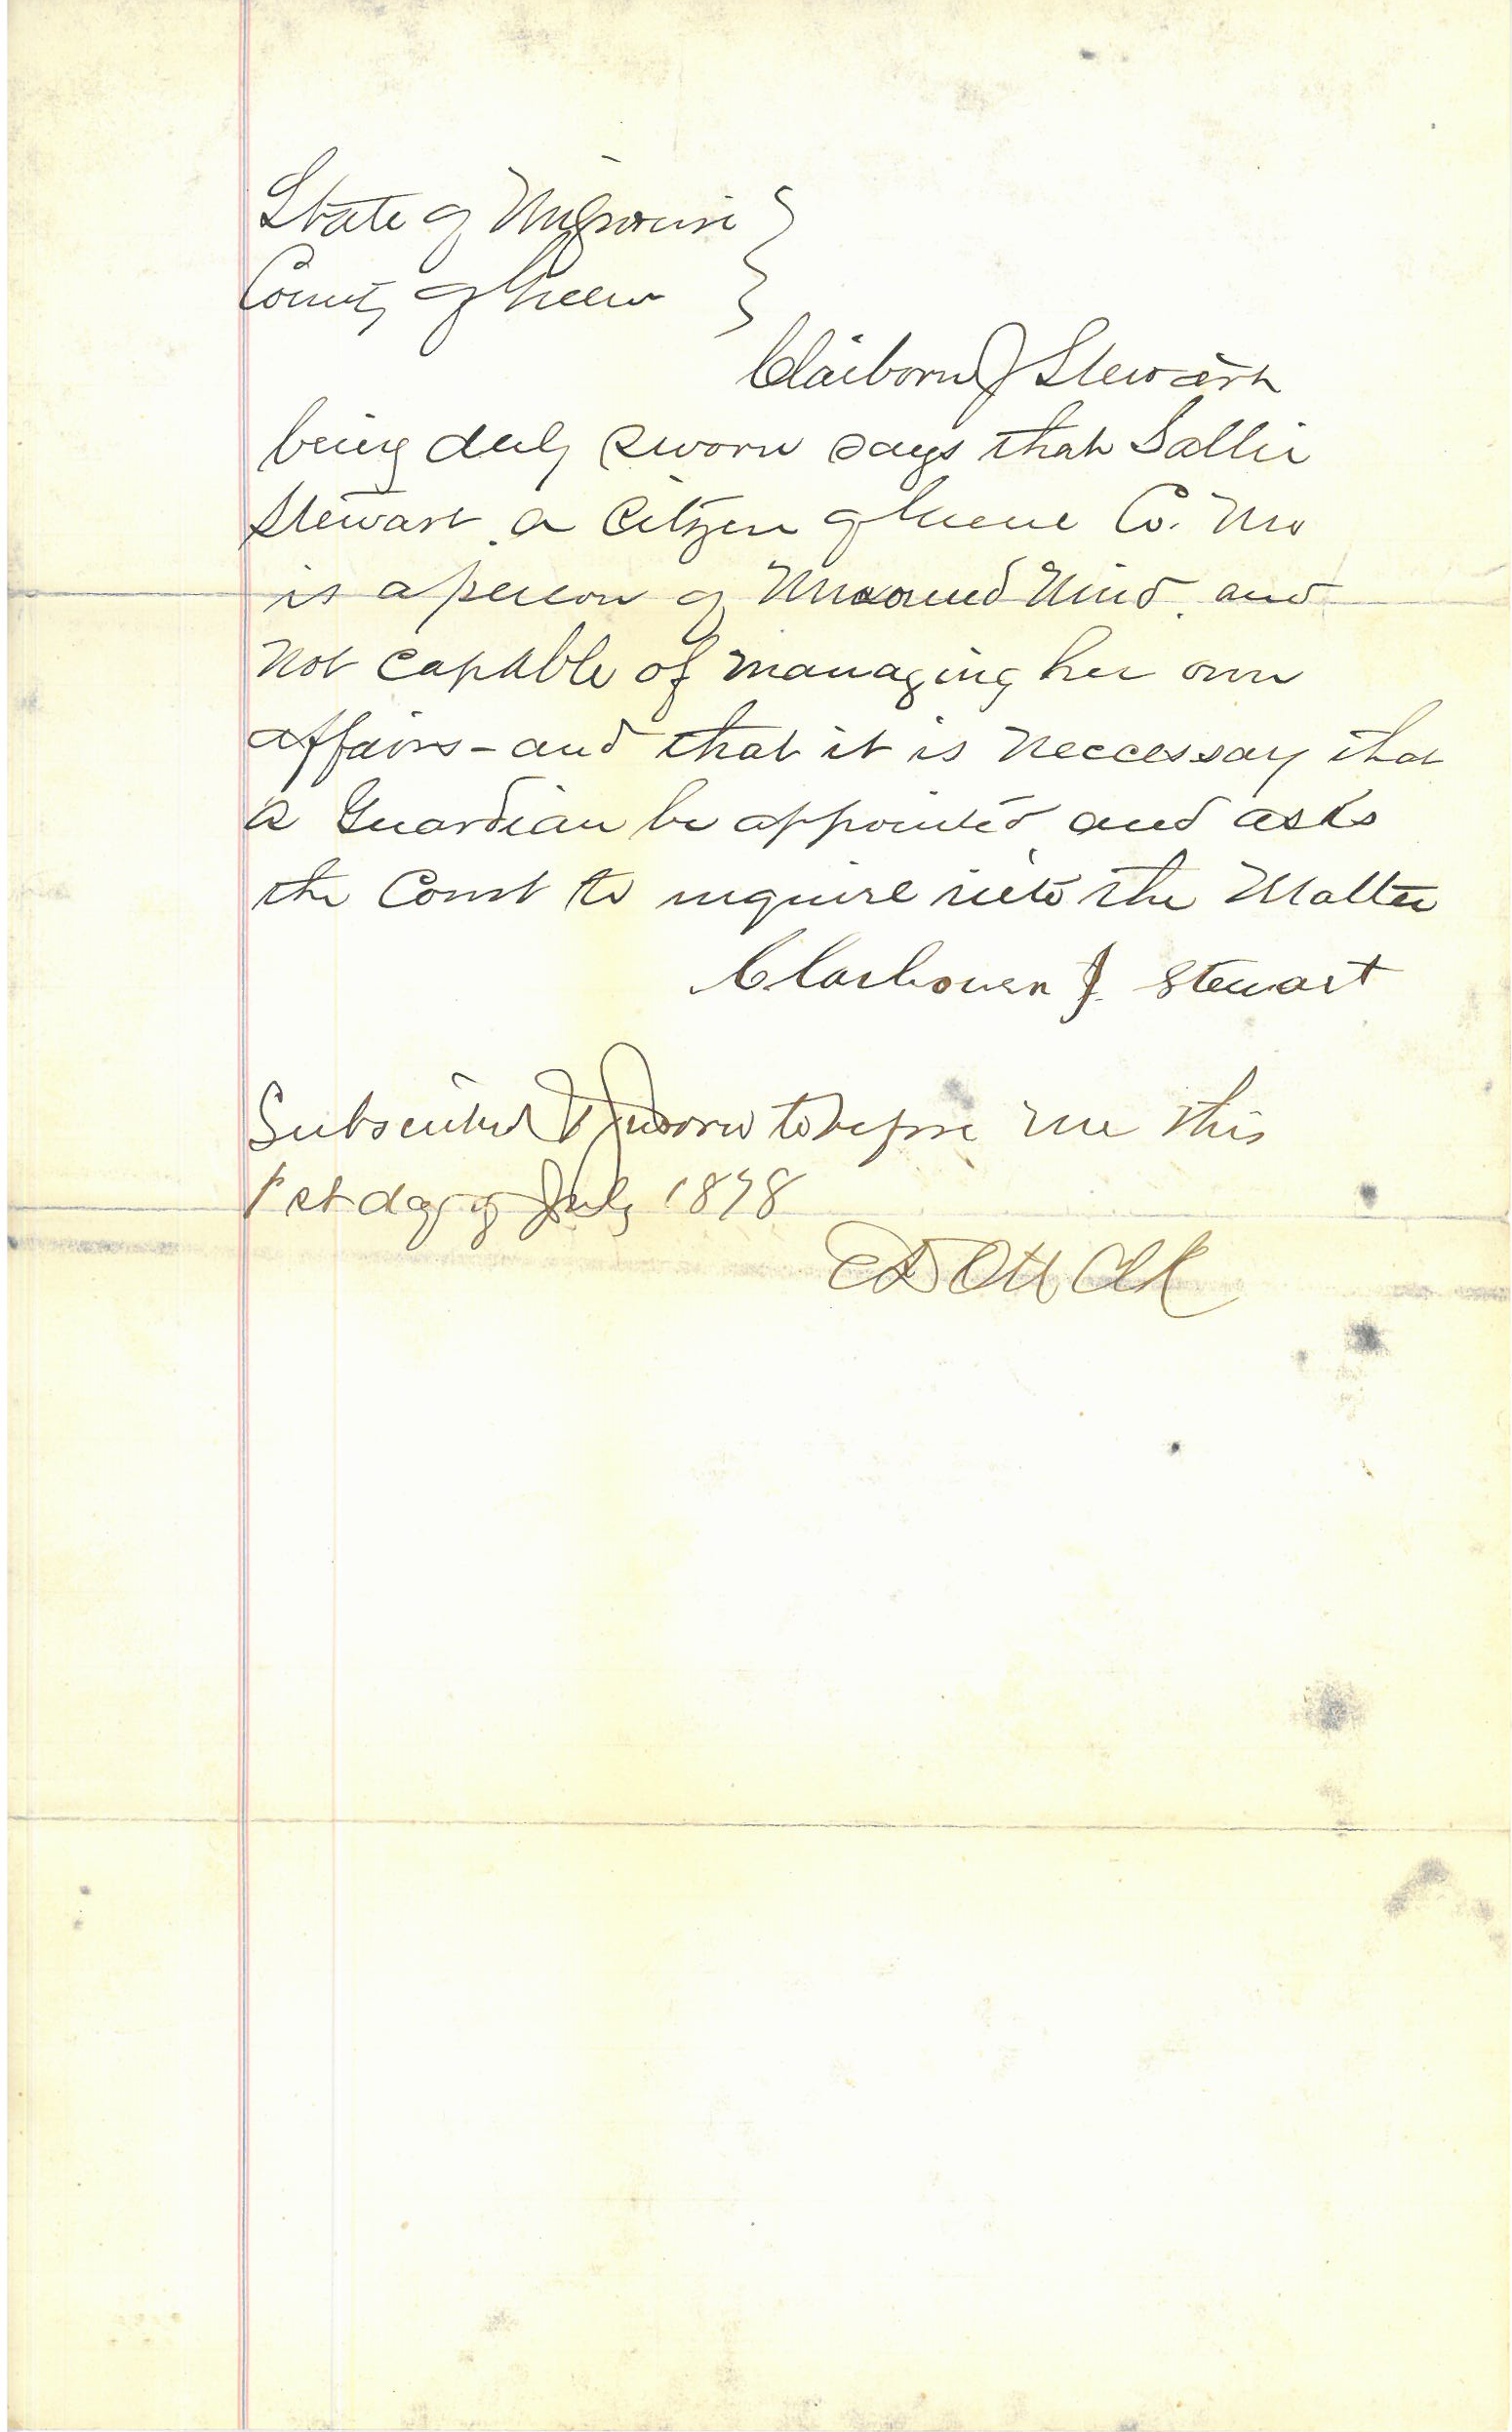 State of Missouri }
County of Greene }
Claiborne J Stewart
being duly sworn says that Sallie
Stewart a Citizen of Greene Co. Mo
is a person of Unsound Mind and
Not Capable of managing her own
affairs - and that it is neccessay that
a Guardian be appointed and asks
the Court to inquire into the Matter
Claibouen J. Stewart
Subscribed & Sworn to before me this
1st day of July 1878
E D Ott Clk